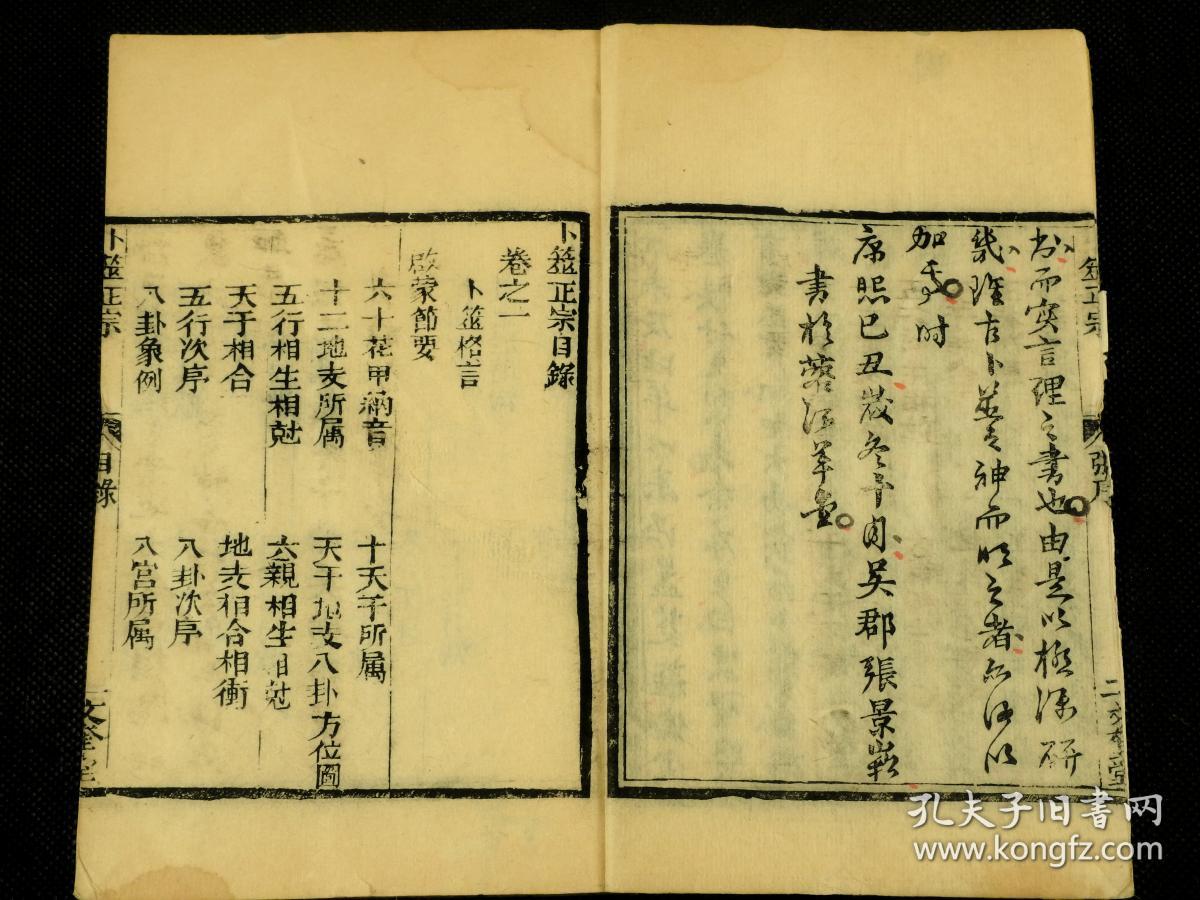 而实言理之書也由是以極深研
幾雖古卜筮之神而明之者亦何以
加焉時
康熙己丑歲冬十月吳郡張景崧
書於
卜筮正宗目錄
卷之一
卜筮格言
啟蒙節要
六十花甲納音 十天干所属
十二地支所属 天干地支八卦方位圖
五行相生相尅 六親相生相尅
天干相合 地支相合相衝
五行次序 八卦次序
八卦象例 八宮所属
卜筮正宗 目錄 文奎堂
孔夫子旧書网
www.kongfz.com